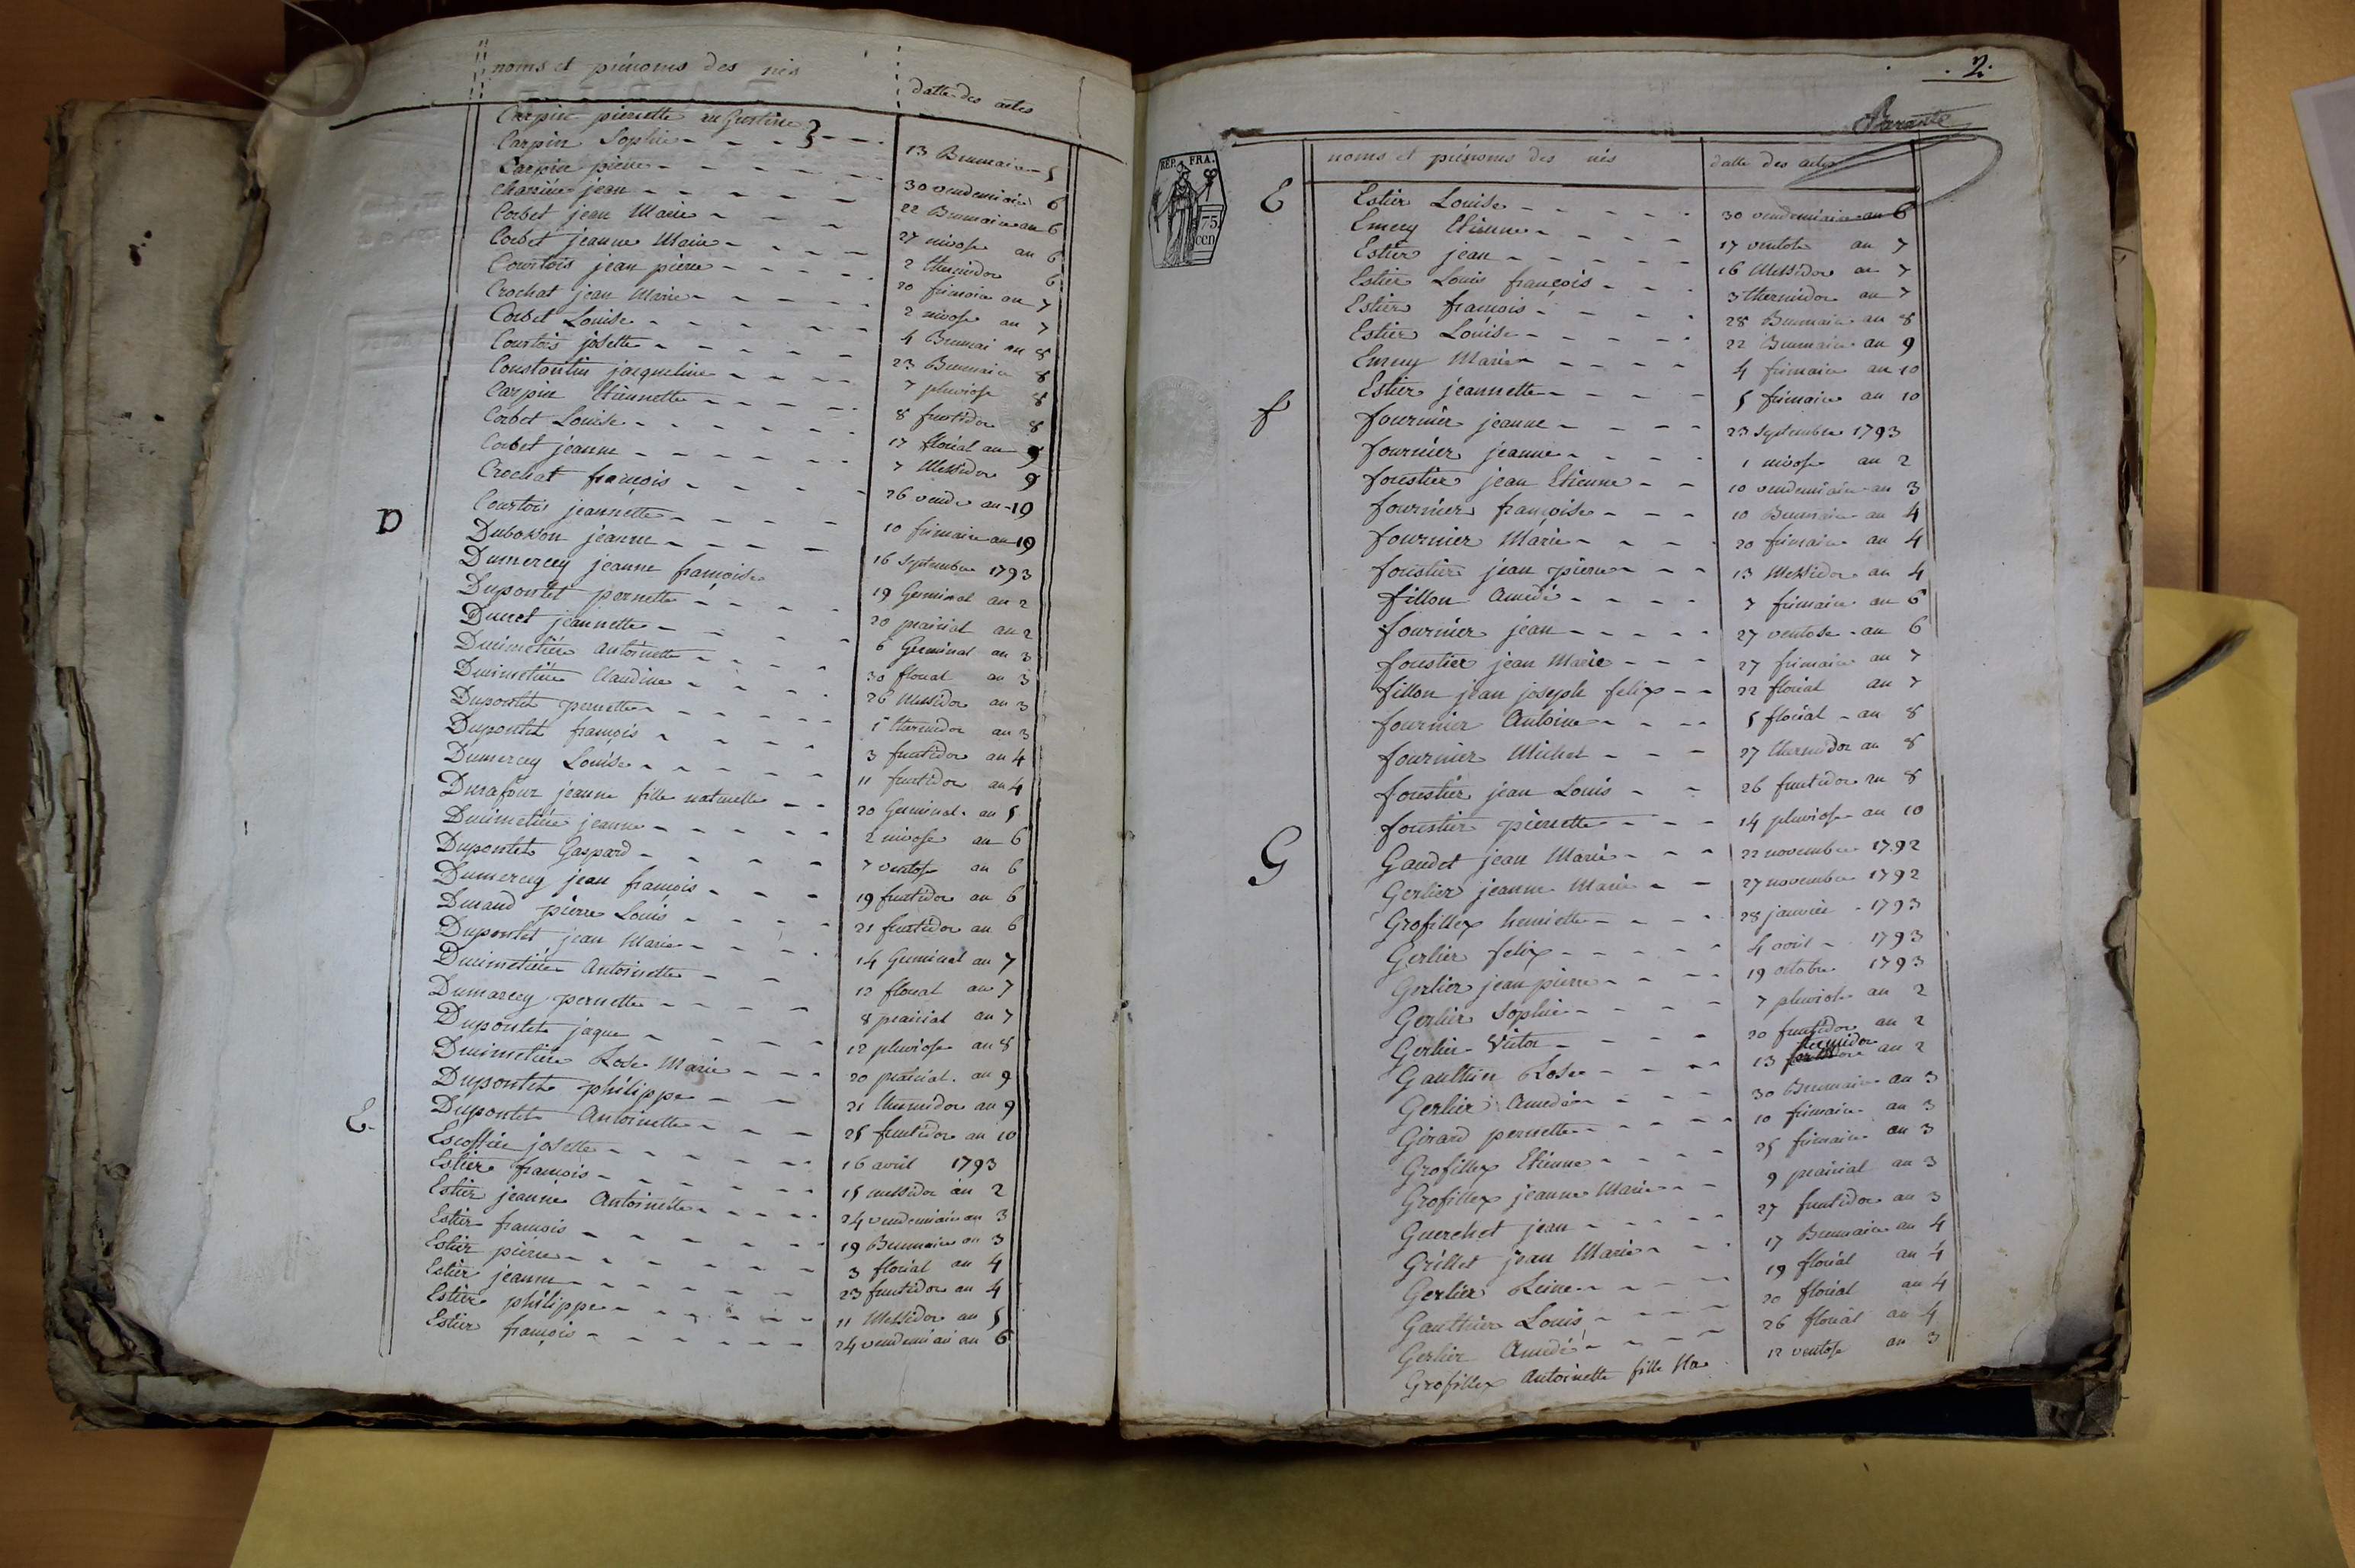 noms et prénoms des nés
datte des actes
Carpin pierrette
Carpin Sophie
13 Brumaire 5
Carpin pierre
30 vendemiaire 6
jean
22 Brumaire an 6
Corbet jean Marie
27 nivose an 6
Corbet jeanne Marie
2 thermidor 6
Courtois jean pierre
20 frimaire an 7
Crochat jean Marie
2 nivose an 7
Corbet Louise
4 Brumai an 8
Courtois josette
23 Brumaire 8
Constantin jacqueline
7 pluviose 8
Carpin Etiennette
8 fructidor 8
Corbet Louise
17 floréal an 9
Corbet jeanne
7 Messidor 9
Crochat françois
26 vende an 10
Courtois jeannette
10 frimaire an 10
D
Dubosson jeanne
16 Septembre 1793
Dumercey jeanne françoise
19 Germinal an 2
Dupontet pernette
20 prairial an 2
Ducret jeannette
6 Germinal an 3
Ducimetière Antoinette
30 floreal an 3
Ducimetière Claudine
26 Messidor an 3
Dupontet pernette
1 thermidor an 3
Dupontet françois
3 fructidor an 4
Dumercey Louise
11 fructidor an 4
Durafour jeanne fille naturelle
20 Germinal an 5
Ducimetière jeanne
2 nivose an 6
Dupontet Gaspard
7 ventose an 6
Dumercey jean françois
19 fructidor an 6
Durand pierre Louis
21 fructidor an 6
Dupontet jean Marie
14 Germinal an 7
Ducimetière Antoinette
12 floreal an 7
Dumarcey pernette
8 prairial an 7
Dupontet jaque
12 pluviose an 8
Ducimetière Rose Marie
20 prairial an 9
Dupontet philippe
21 thermidor an 9
Dupontet Antoinette
25 fructidor an 10
E
Escoffier josette
16 avril 1793
Estier françois
15 messidor an 2
Estier jeanne Antoinette
24 vendemiaire an 3
Estier françois
19 Brumaire an 3
Estier pierre
3 floréal an 4
Estier jeanne
23 fructidor an 4
Estier philippe
11 Messidor an 5
Estier françois
24 vendemiai an 6
2
Barante
REP. FRA.
75
cen
noms et prénoms des nés
datte des actes
E
Estier Louise
30 vendemiaire an 6
Emery Etienne
17 ventose an 7
Estier jean
16 Messidor an 7
Estier Louis françois
3 thermidor an 7
Estier françois
28 Brumaire an 8
Estier Louise
22 Brumaire an 9
Emery Marie
4 frimaire an 10
Estier jeannette
5 frimaire an 10
f
fournier jeanne
23 Septembre 1793
fournier jeanne
1 nivose an 2
forestier jean Etienne
10 vendemiaire an 3
fournier françoise
10 Brumaire an 4
fournier Marie
20 frimaire an 4
forestier jean pierre
13 Messidor an 4
fillon Amedé
7 frimaire an 6
fournier jean
27 ventose an 6
forestier jean Marie
27 frimaire an 7
fillon jean joseph felix
22 floréal an 7
fournier Antoine
5 floréal an 8
fournier Michel
27 thermidor an 8
forestier jean Louis
26 fructidor an 8
forestier pierrette
14 pluviose an 10
G
Gaudet jean Marie
22 novembre 1792
Gerlier jeanne Marie
27 novembre 1792
Grofillex henriette
28 janvier 1793
Gerlier felix
4 avril 1793
Gerlier jean pierre
19 octobre 1793
Gerlier Sophie
7 pluviose an 2
Gerlier Victor
20 fructidor an 2
Gauthier Rose
13 thermidor an 2
Gerlier Amedé
30 Brumaire an 3
Girard pernette
10 frimaire an 3
Grofillex Etienne
25 frimaire an 3
Grofillex jeanne Marie
9 prairial an 3
Guerchet jean
27 fructidor an 3
Grillet jean Marie
17 Brumaire an 4
Gerlier Reine
19 floréal an 4
Gauthier Louis
20 floréal an 4
Gerlier Amedé
26 floréal an 4
Grofillex Antoinette fille Na
12 ventose an 3